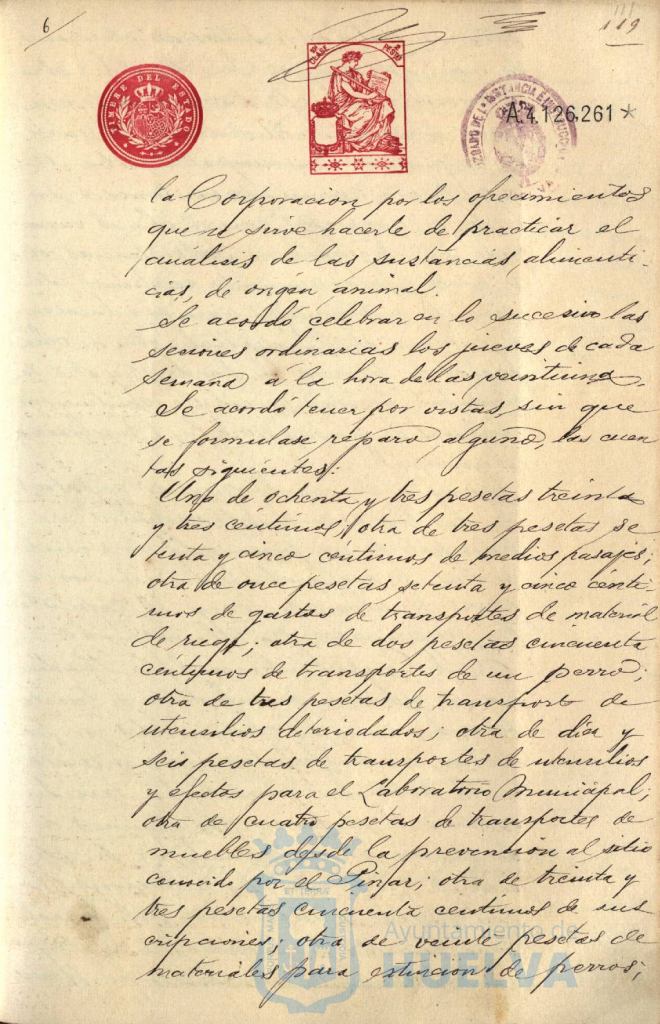 6
119
TIMBRE DEL ESTADO
10ª CLASE
PESETAS
JUZGADO DE 1ª INSTANCIA E INSTRUCCION
A.4.126.261*
la Corporacion por los ofrecimientos
que se sirve hacerle de practicar el
análisis de las sustancias alimenti-
cias, de origen animal.
Se acordó celebrar en lo sucesivo las
sesiones ordinarias los jueves de cada
semana á la hora de las veintiuna.
Se acordó tener por vistas, sin que
se formulase reparo alguno, las cuen
tas siguientes:
Una de ochenta y tres pesetas treinta
y tres céntimos; otra de tres pesetas se
tenta y cinco centimos de medios pasajes;
otra de once pesetas setenta y cinco cénti-
mos de gastos de transportes de material
de riego; otra de dos pesetas cincuenta
céntimos de transportes de un perro;
otra de tres pesetas de transporte de
utensilios deteriodados; otra de diez y
seis pesetas de transportes de utensilios
y efectos para el Laboratorio Municipal;
otra de cuatro pesetas de transportes de
muebles desde la prevención al sitio
conocido por el Pinar; otra de treinta y
tres pesetas cincuenta centimos de sus
cripciones; otra de veinte pesetas de
materiales para estincion de perros;
Ayuntamiento de
HUELVA